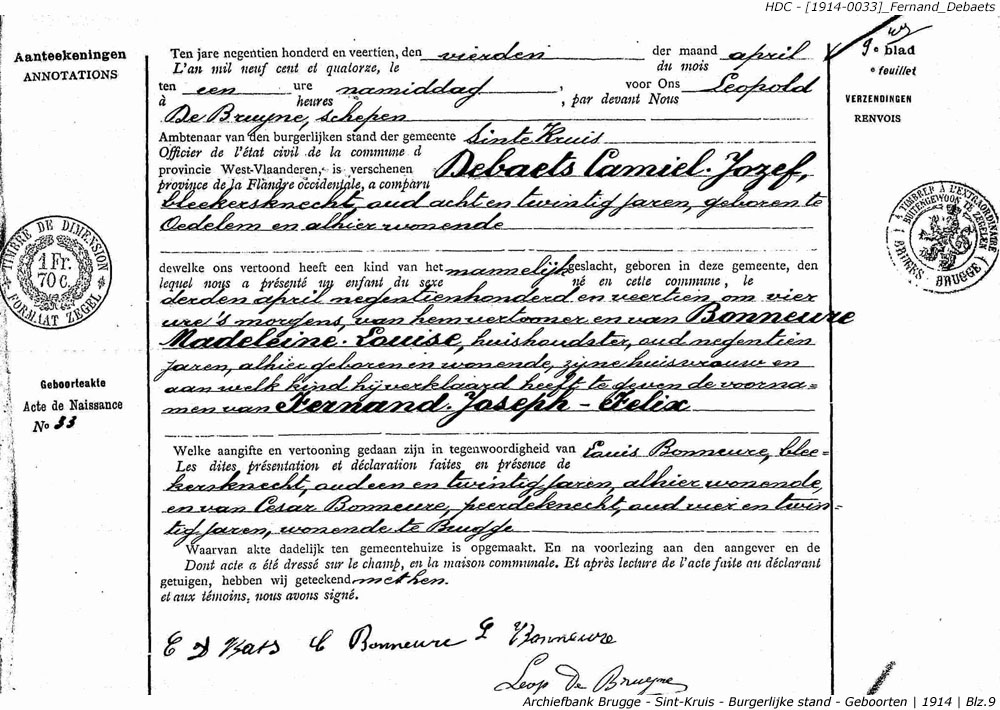 HDC - [1914-0033]_Fernand_Debaets
Aanteekeningen
ANNOTATIONS
Ten jare negentien honderd en veertien, den vierden der maand april
L'an mil neuf cent et quatorze, le du mois
ten een ure namiddag, voor Ons Leopold
à heures , par devant Nous
De Bruyne, schepen
Ambtenaar van den burgerlijken stand der gemeente Sinte Kruis
Officier de l'état civil de la commune d
provincie West-Vlaanderen, is verschenen Debaets Camiel-Jozef,
province de la Flandre occidentale, a comparu
bleekersknecht, oud acht en twintig jaren, geboren te
Oedelem en alhier wonende
dewelke ons vertoond heeft een kind van het mannelijk geslacht, geboren in deze gemeente, den
lequel nous a présenté un enfant du sexe né en cette commune, le
derden april negentienhonderd en veertien, om vier
ure 's morgens, van hem vertooner en van Bonneure
Madeleine-Louise, huishoudster, oud negentien
jaren, alhier geboren en wonende, zijne huisvrouw en
aan welk kind hij verklaard heeft te geven de voorna=
men van Fernand-Joseph-Felix
Welke aangifte en vertooning gedaan zijn in tegenwoordigheid van Louis Bonneure, blee=
Les dites présentation et déclaration faites en présence de
kersknecht, oud een en twintig jaren, alhier wonende,
en van Cesar Bonneure, peerdeknecht, oud vier en twin=
tig jaren, wonende te Brugge
Waarvan akte dadelijk ten gemeentehuize is opgemaakt. En na voorlezing aan den aangever en de
Dont acte a été dressé sur le champ, en la maison communale. Et après lecture de l'acte faite au déclarant
getuigen, hebben wij geteekend met hen.
et aux témoins, nous avons signé.
C D Bats C Bonneure L Bonneure
Leop De Bruyne
9e blad
e feuillet
VERZENDINGEN
RENVOIS
TIMBRE DE DIMENSION
1 Fr.
70 C.
FORMAAT ZEGEL
TIMBRE A L'EXTRAORDINAIRE
BUITENGEWOON TE ZEGELEN
BRUGES - BRUGGE
Geboorteakte
Acte de Naissance
No 33
Archiefbank Brugge - Sint-Kruis - Burgerlijke stand - Geboorten | 1914 | Blz.9